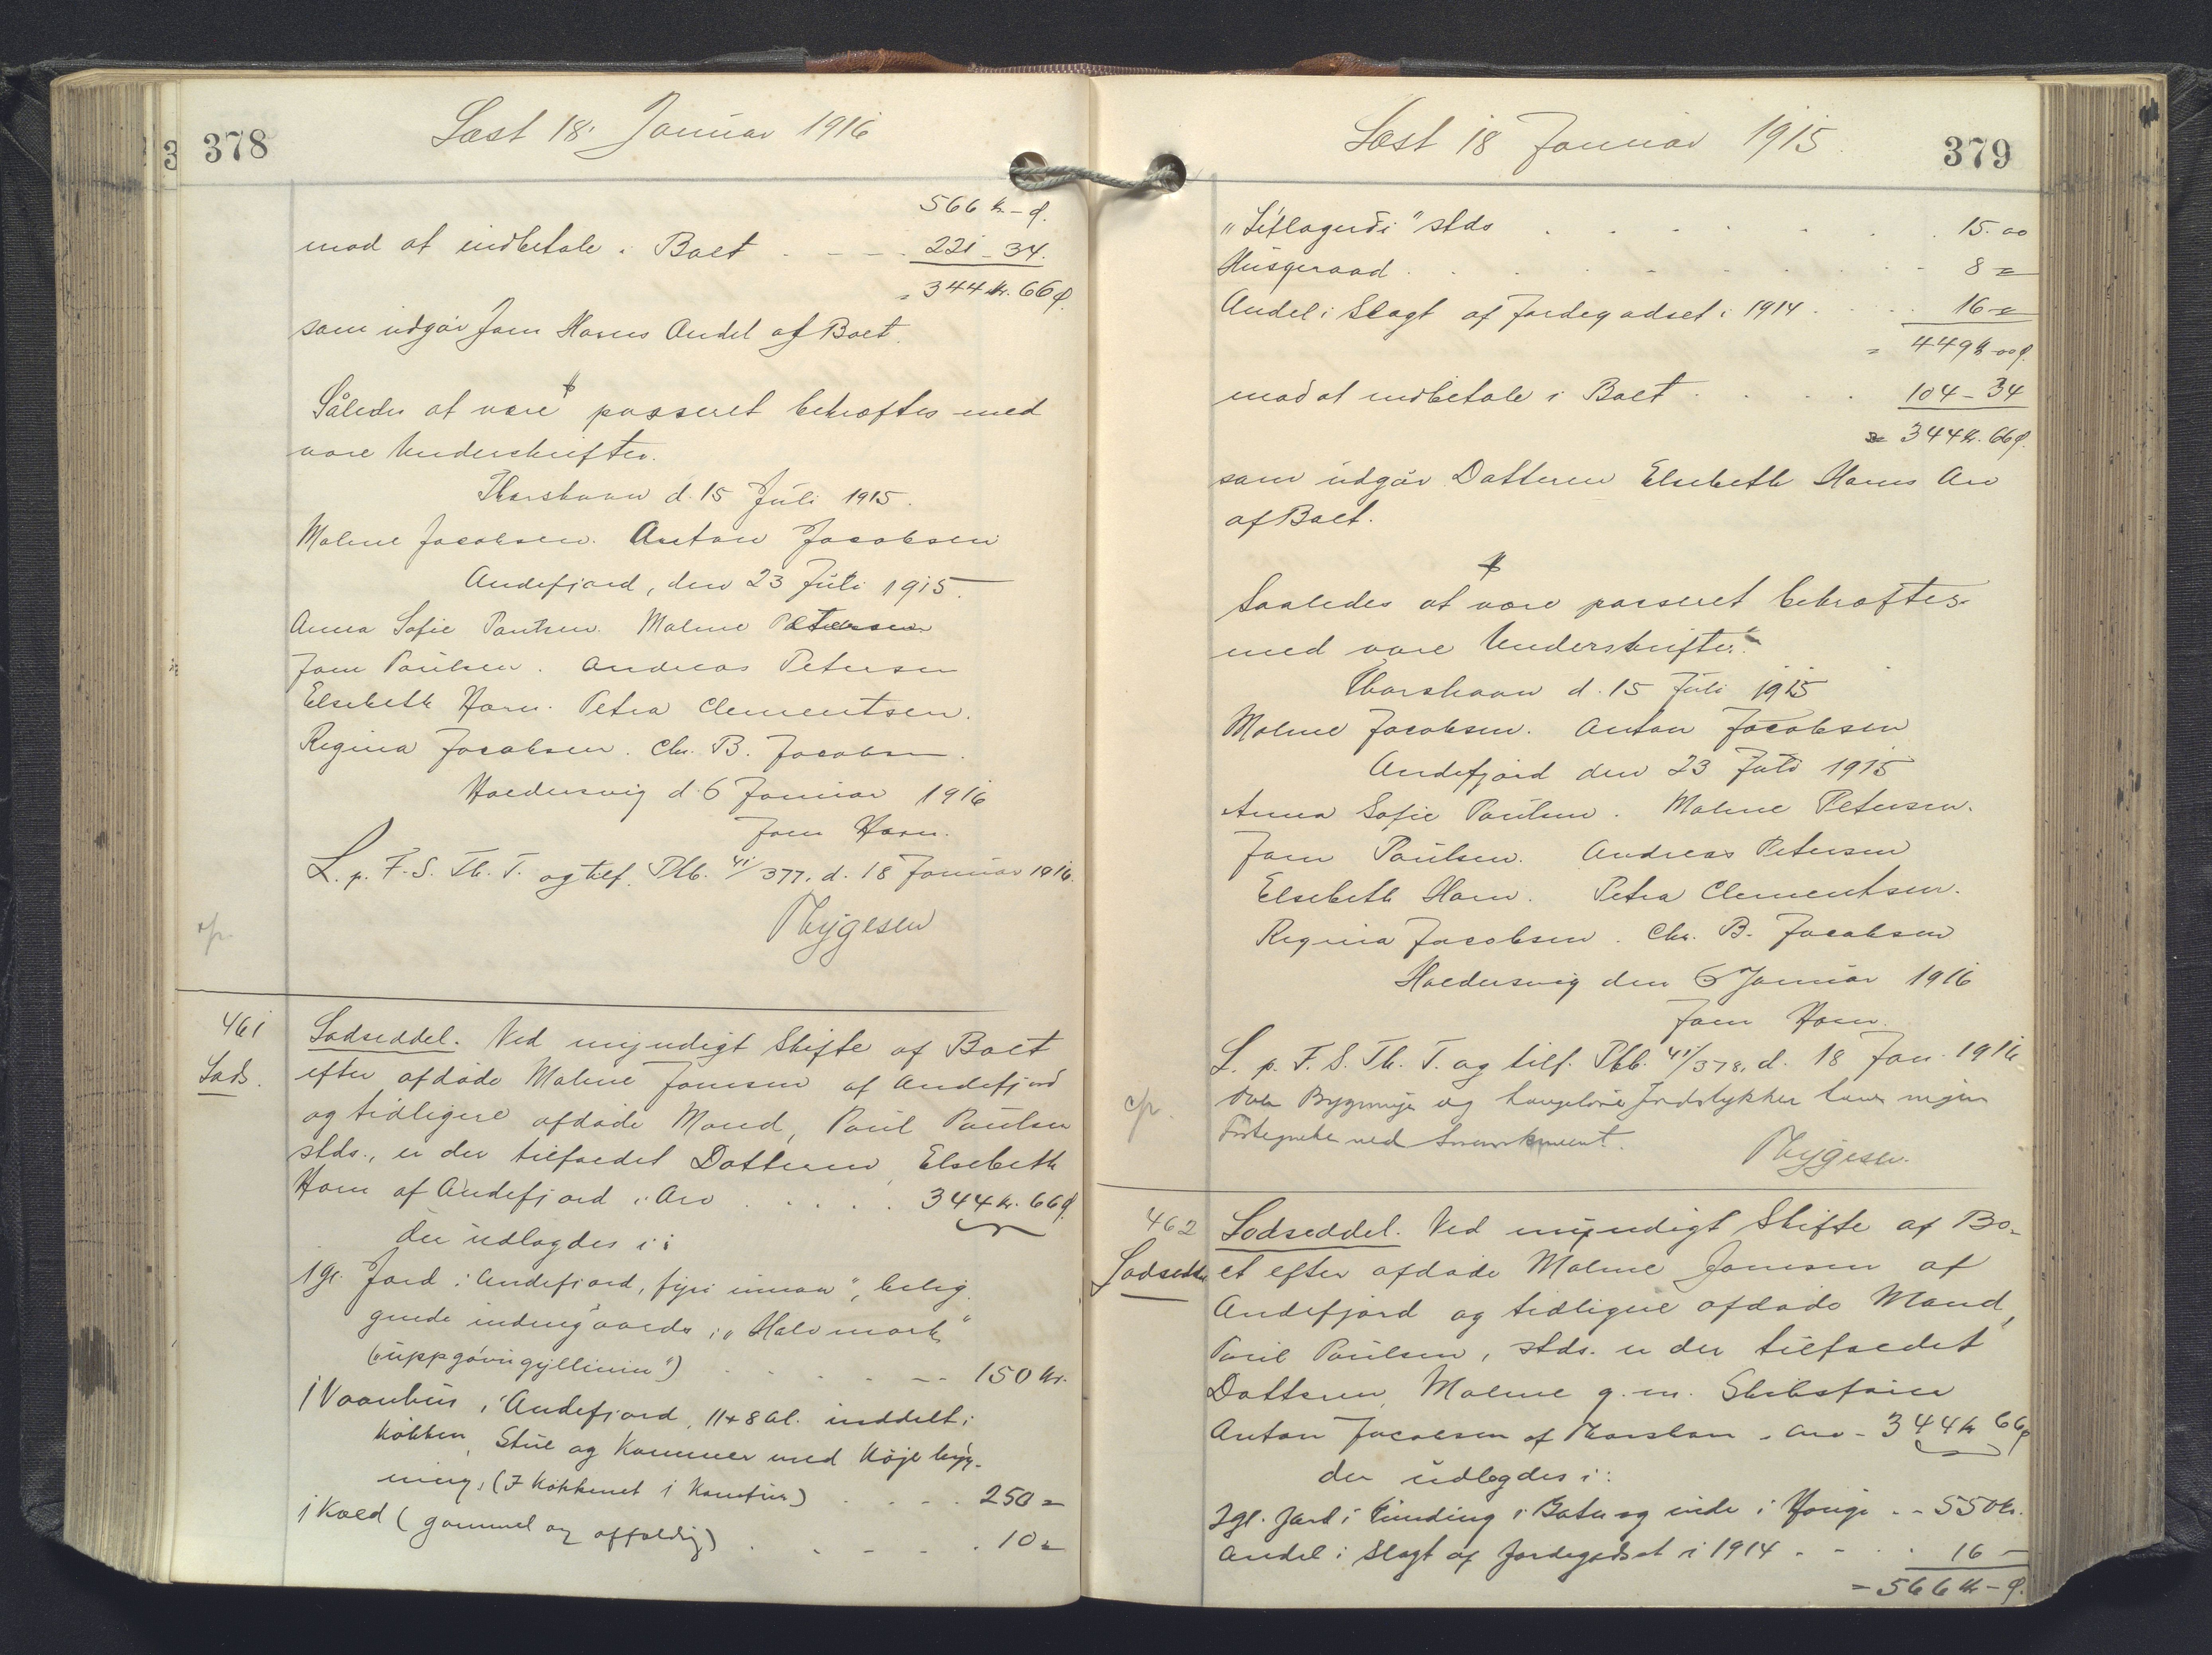 378
Læst 18' Januar 1916
566 kr. - ø.
mod at indbetale i Boet - - - 221 - 34.
= 344 kr. 66 ø.
som udgör Joen Harns Andel af Boet.
Således at være passeret bekræftes med
vore Underskrifter.
Thorshavn d. 15 Juli 1915.
Malene Jacobsen. Anton Jacobsen
Andefjord, den 23 Juli 1915.
Anna Sofie Poulsen. Malene Petersen
Joen Poulsen. Andreas Petersen
Elsebeth Harn. Petra Clementsen.
Regina Jacobsen. Chr. B. Jacobsen.
Haldersvig d. 6 Januar 1916
Joen Harn.
L. p. F. S. Th. T. og tilf. Ptb. 41/377. d. 18 Januar 1916.
Nygesen
cp.
461
Lods.
Lodseddel. Ved myndigt Skifte af Boet
efter afdöde Malene Joensen af Andefjord
og tidligere afdöde Mand, Poul Poulsen
stds., er der tilfaldet Datteren Elsebeth
Harn af Andefjord i Arv . . . . . 344 kr. 66 ø.
der udlagdes i:
1 gl. Jord i Andefjord, fyri innan", belig
gende indengaards i „Halvmork"
("uppgóvugyllinin") . . . . - - 150 kr.
1 Vaanhus i Andefjord, 11 + 8 Al. inddelt i
Kökken, Stue og Kammer med Köjebyg-
ning, (I Kökkenet 1 Komfur) . . . . 250 =
1 Kæld (gammel og affældig) . . - - . 10 =
Læst 18 Januar 1915.
379
"Litlagerði" stds . . . . . . . 15. 00
Husgeraad . . . . . . . . 8 =
Andel i Slagt af Jordegodset i 1914 . . . . 16 =
= 449 kr 00 ø.
mod at indbetale i Boet . . . . 104 - 34
= 344 kr. 66 ø.
som udgör Datteren Elsebeth Harns Arv
af Boet.
Saaledes at være passeret bekræftes
med vore Underskrifter.
Thorshavn d. 15 Juli 1915
Malene Jacobsen. Anton Jacobsen
Andefjord den 23 Juli 1915
Anna Sofie Poulsen. Malene Petersen.
Joen Poulsen. Andreas Petersen
Elsebeth Harn. Petra Clementsen.
Regina Jacobsen. Chr. B. Jacobsen
Haldersvig den 6 Januar 1916
Joen Harn.
L. p. F. S. Th. T. og tilf. Ptb. 41/378, d. 18 Jan. 1916
cp.
Over Bygninger og Jordstykker haves ingen
Fortegnelse ved
Nygesen.
462
Lodseddel
Lodseddel. Ved myndigt Skifte af Bo-
et efter afdöde Malene Joensen af
Andefjord og tidligere afdöde Mand,
Poul Poulsen, stds. er der tilfaldet
Datteren, Malene g. m. Skibsförer
Anton Jacobsen af Thorshavn i Arv - 344 kr 66 ø
der udlagdes i:
2 gl. Jord i Funding i Götu og inde i Hougi . - 550 kr.
Andel i Slagt af Jordegodset i 1914 . - . . 16 -
= 566 kr - ø.